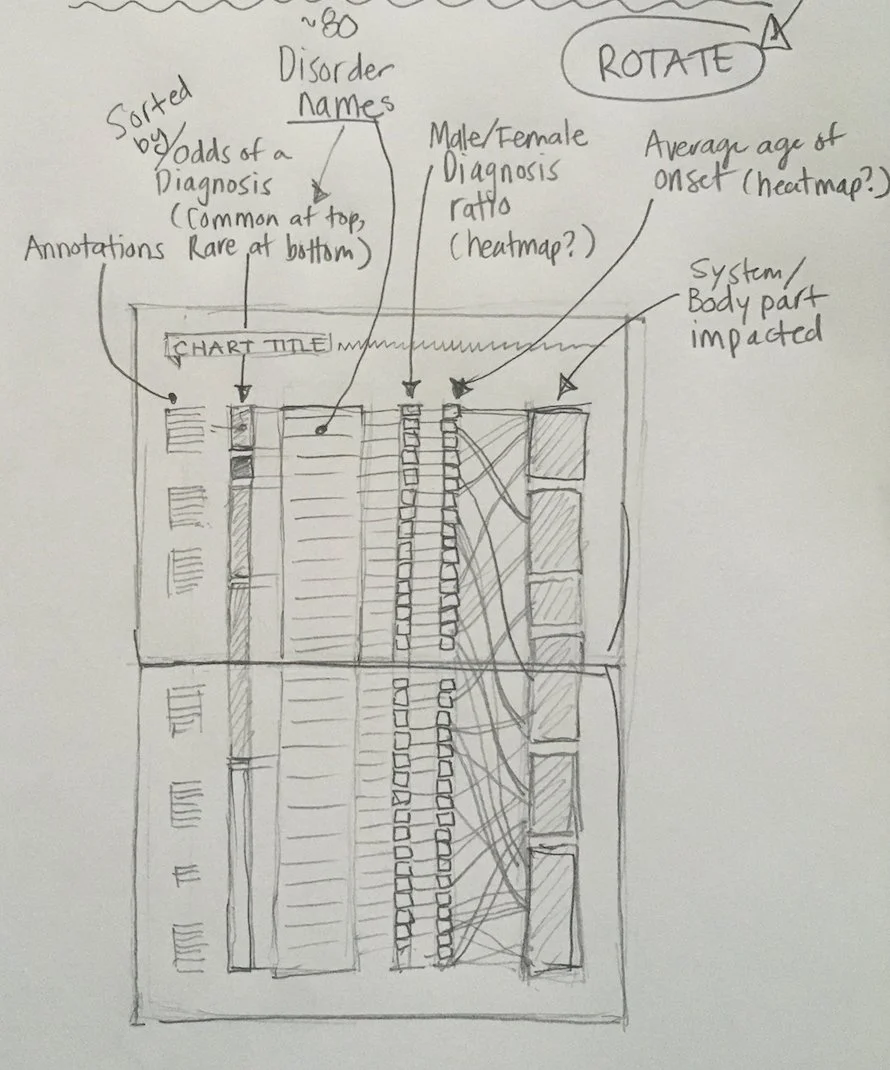 ROTATE
~80
Disorder
names
Sorted
by/
Odds of a
Diagnosis
(Common at top,
Rare at bottom)
Annotations
Male/Female
Diagnosis
ratio
(heatmap?)
Average age of
onset (heatmap?)
System/
Body part
impacted
CHART TITLE